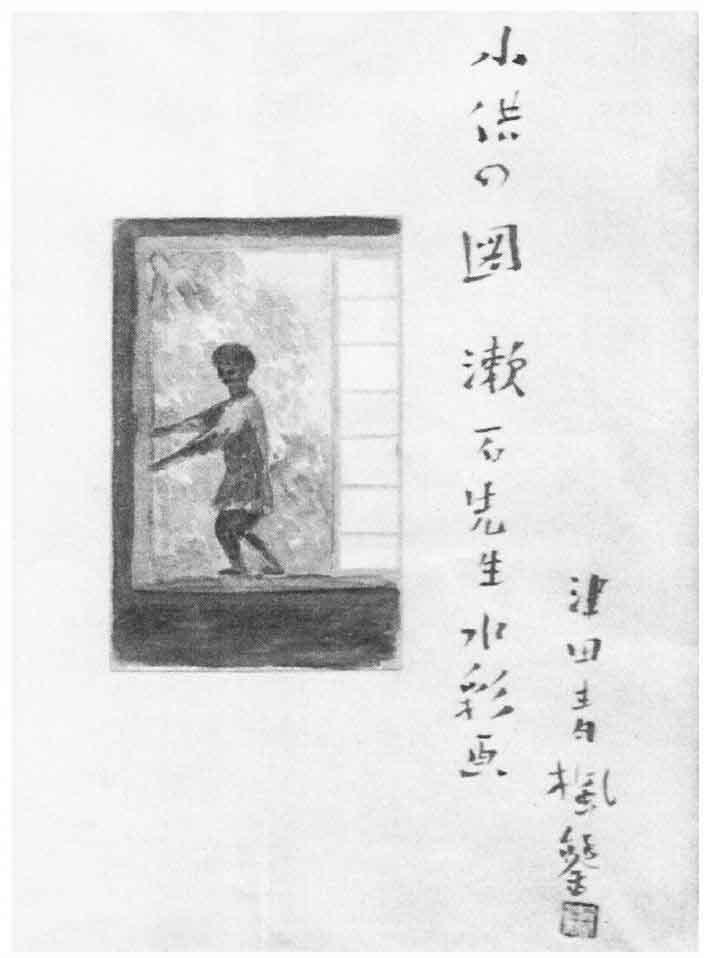 小供の圖 漱石先生水彩画
津田青楓鑒